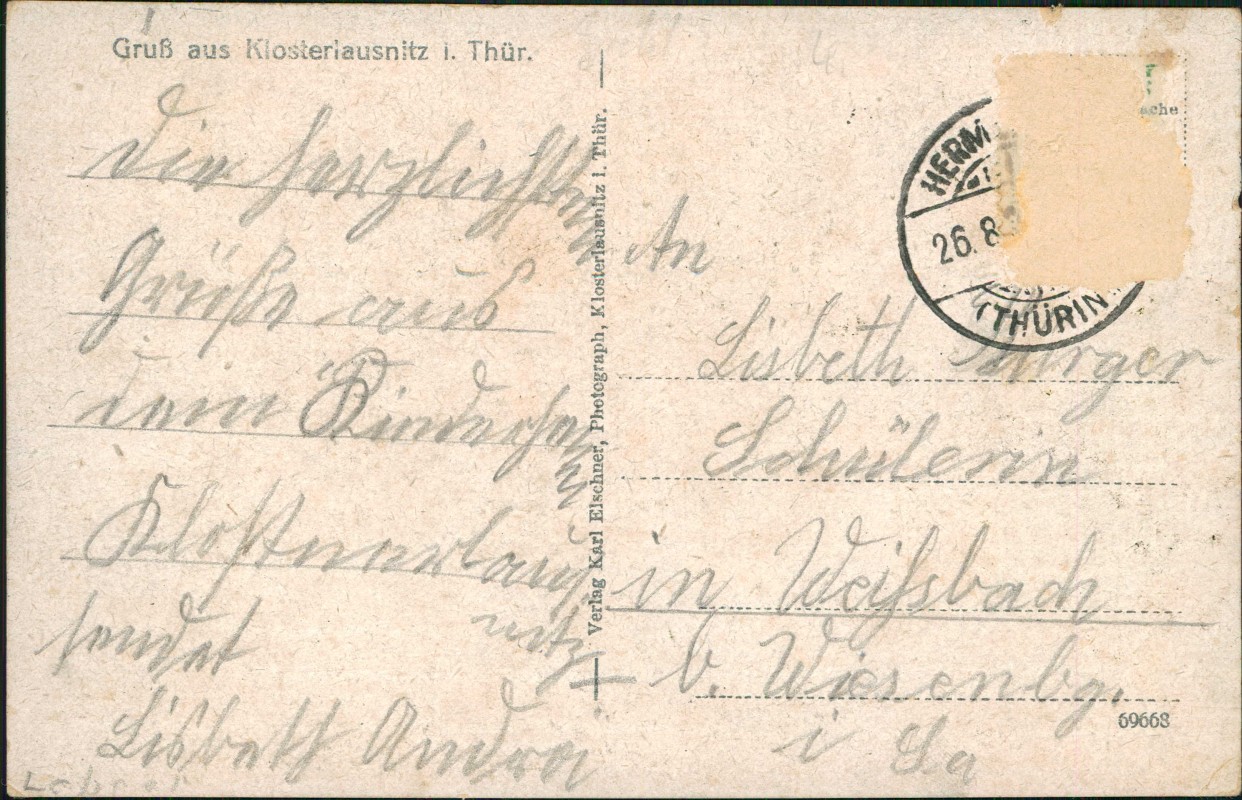 Gruß aus Klosterlausnitz i. Thür.
Die herzlichsten
Grüße aus
dem Kinderheim
Klosterlaus
nitz
sendet
Lisbeth Andra
Verlag Karl Elschner, Photograph, Klosterlausnitz i. Thür.
HERM
26. 8
(THÜRIN
An
Lisbeth
Schülerin
in Weißbach
b. Wiesenbg.
i Sa
69668